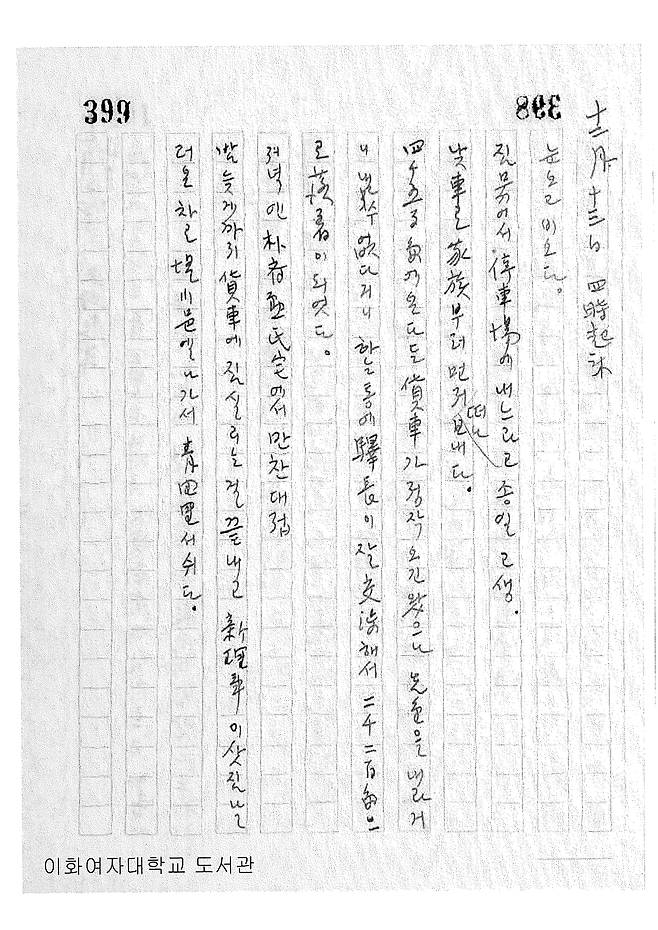 398
399
十二月 十三日 四時起床
눈오고 비오다.
짐 묶어서 停車場에 내느라고 종일 고생.
낮車로 家族부터 먼저 떠나보내다.
四千五百 에온다든 貨車가 정작 오긴 왔으나 先金을 내라거
니 낼수 없다거니 하는통에 驛長이 잘 交涉해서 二千二百 으
로 이 되엿다.
저녁엔 朴 氏宅에서 만찬대접
밤 늦게까지 貨車에 짐실리는걸 끝내고 新理事 이삿짐 날
러온 차로 에 나가서 靑 서 쉬다.
이화여자대학교 도서관